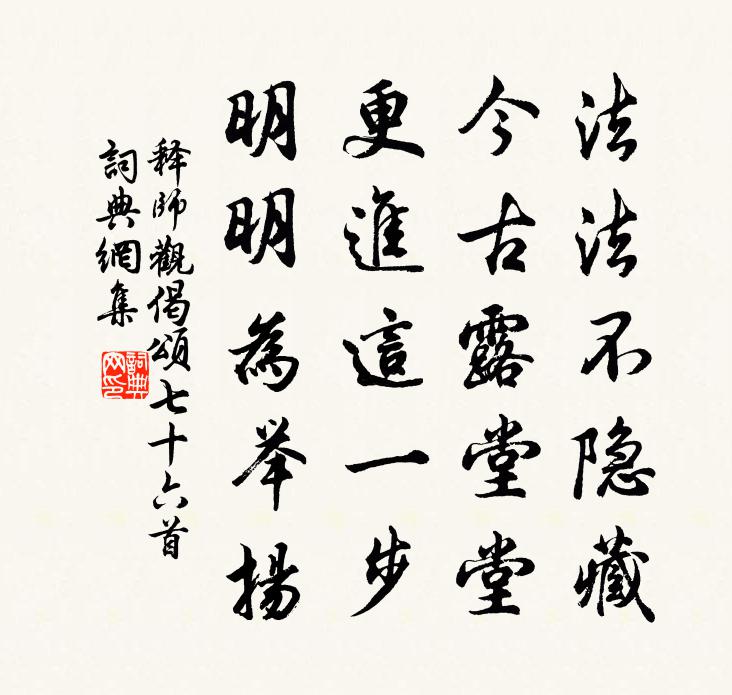 法法不隐藏
今古露堂堂
更進這一步
明明為举揚
释師觀偈頌七十六首
詞典網集
詞典网印